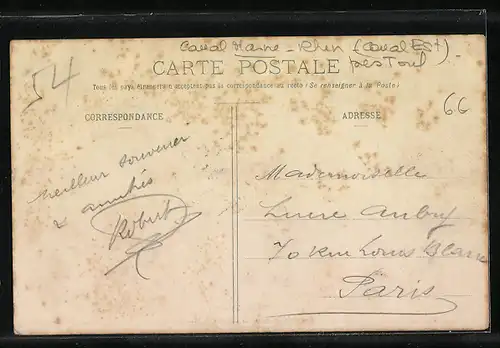 Canal Marne - Rhin (Canal Est)
près Toul
54
CARTE POSTALE
Tous les pays étrangers n'acceptent pas la correspondance au recto (Se renseigner à la Poste)
66
CORRESPONDANCE
ADRESSE
Meilleur souvenir
& amitiés
Robert
Mademoiselle
Lucie Aubry
70 rue Louis Blanc
Paris